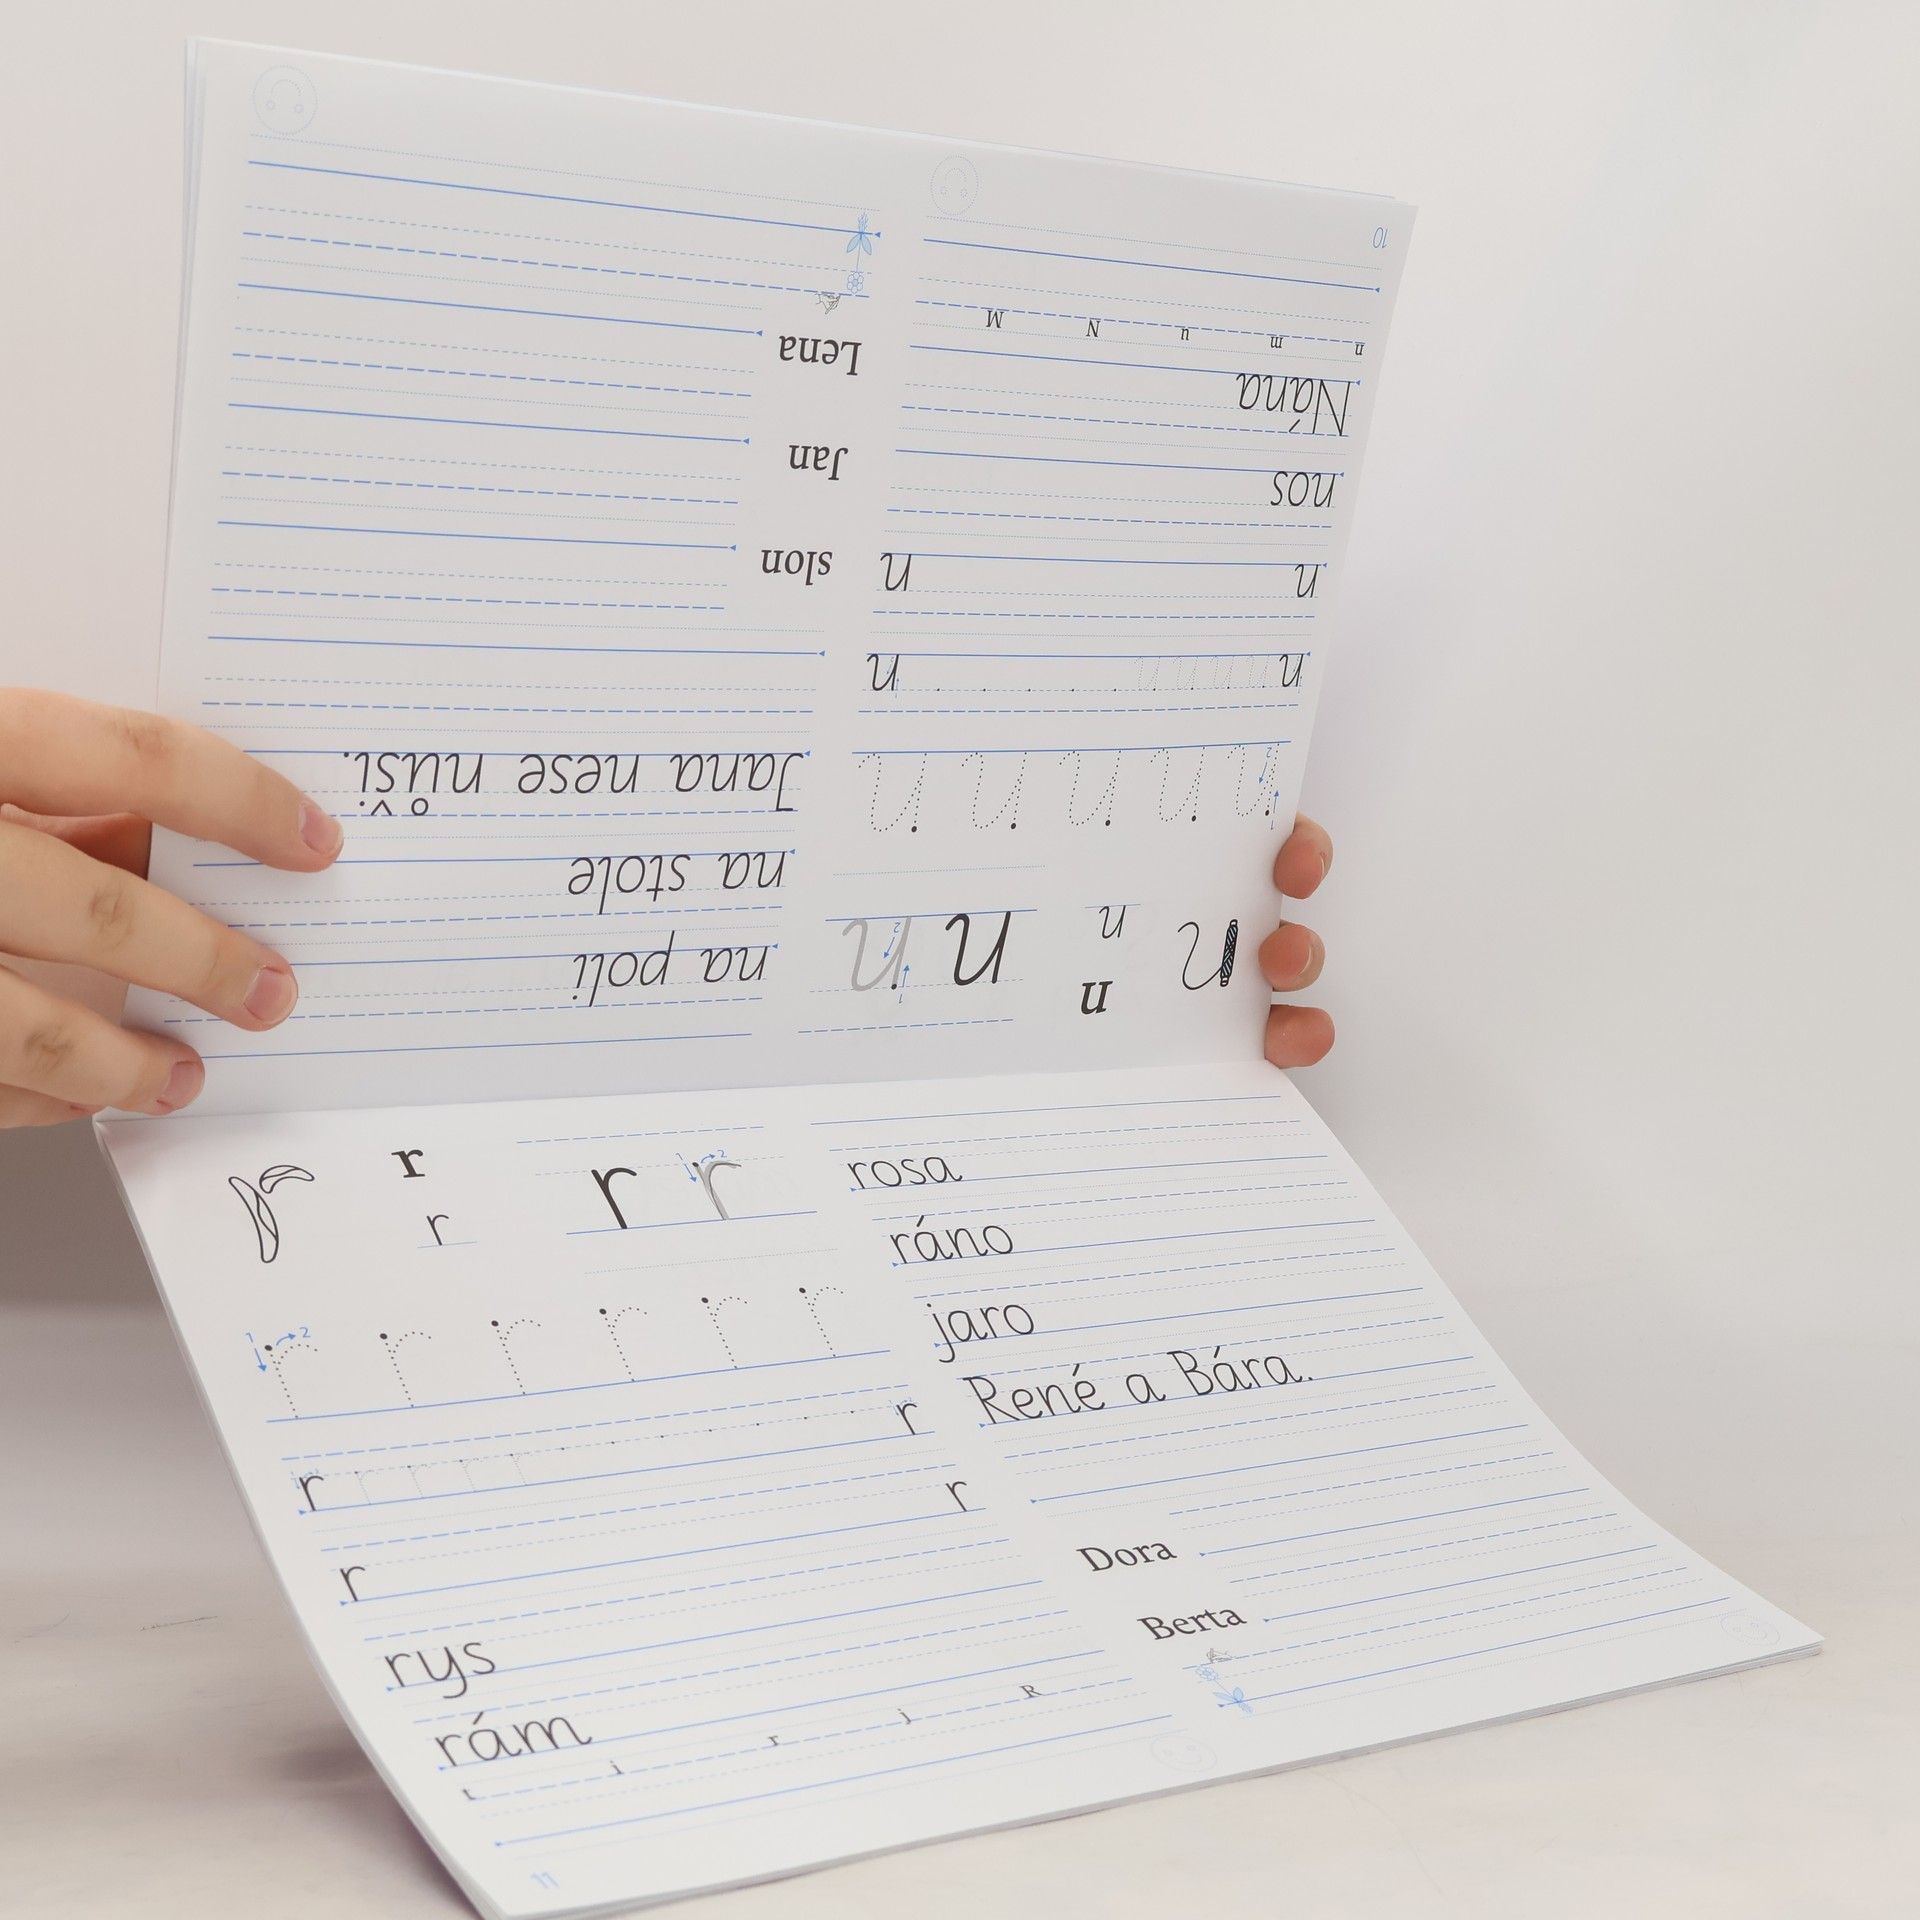 n n n n n
n n n n n
n n n n n n n
n n
nos
Nána
n m u N M
10
na poli
na stole
Jana nese nůši.
slon
Jan
Lena
r r r r r
1 2
r r r r r r
r r r r r r
r r
rys
rám
t j r j R
11
rosa
ráno
jaro
René a Bára.
Dora
Berta